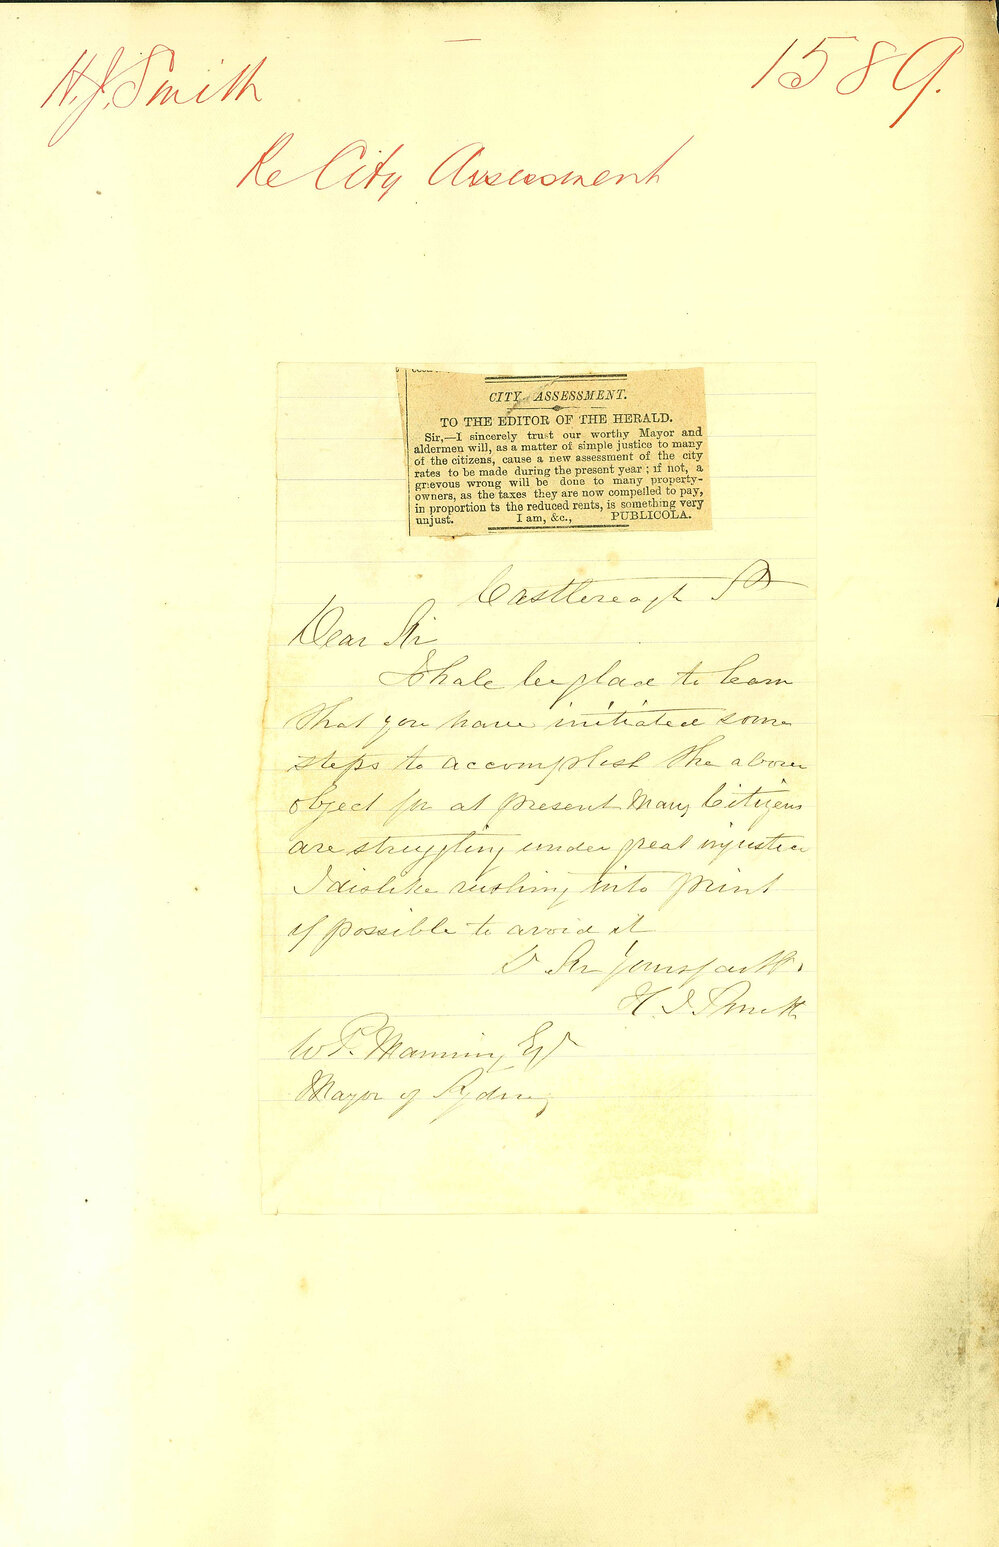 H. J. Smith
1589.
Re City Assessment
CITY ASSESSMENT.
TO THE EDITOR OF THE HERALD.
Sir,—I sincerely trust our worthy Mayor and
aldermen will, as a matter of simple justice to many
of the citizens, cause a new assessment of the city
rates to be made during the present year ; if not, a
grievous wrong will be done to many property-
owners, as the taxes they are now compelled to pay,
in proportion ts the reduced rents, is something very
unjust. I am, &c., PUBLICOLA.
Castlereagh St
Dear Sir
I shale be glad to learn
that you have initiated some
steps to accomplish the above
object for at present Many Citizens
are struggling under great injustice
I dislike rushing into print
if possible to avoid it
D Sir Yours faith.
H. J. Smith
W P. Manning Esqr
Mayor of Sydney